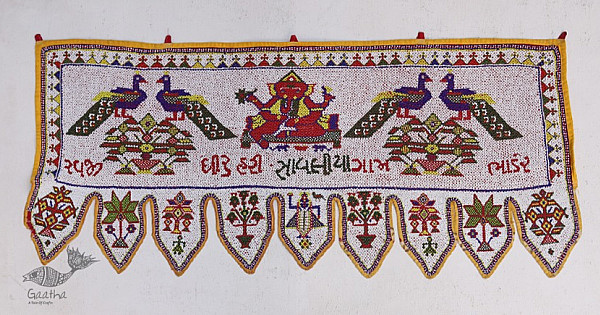 રવજી ધીરૂ હરી સાવલીયા ગામ ભાડેર
Gaatha
A Tale Of Crafts